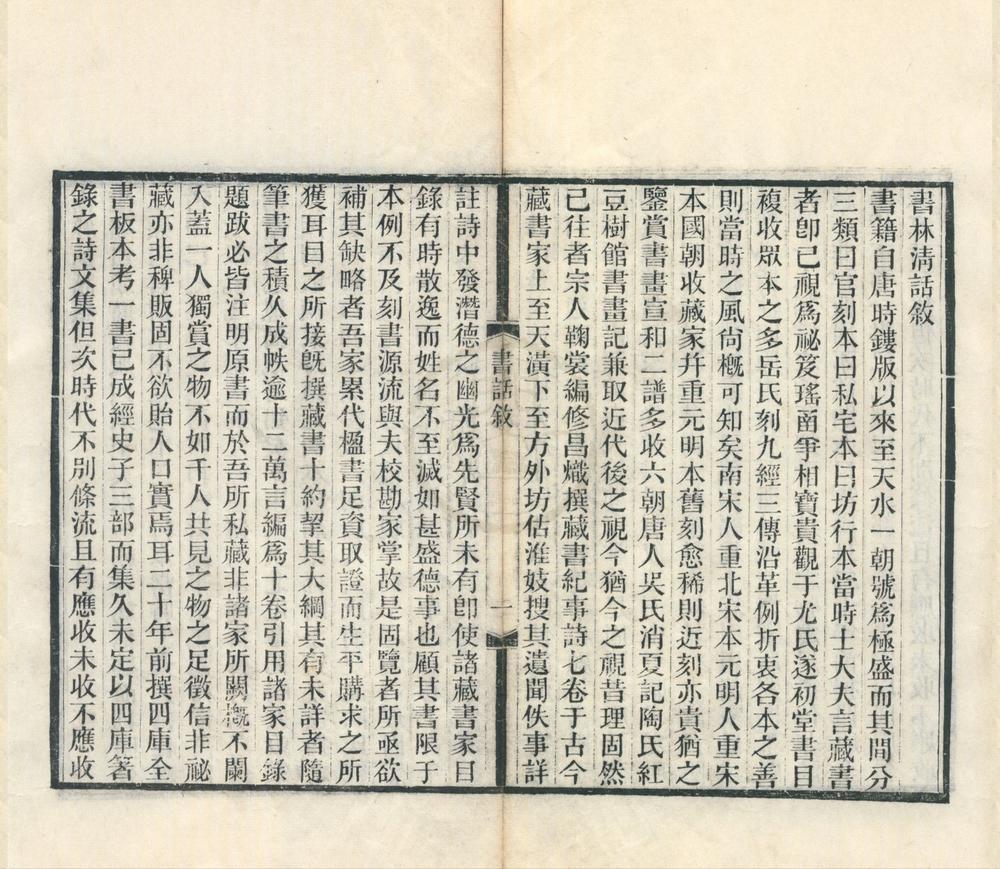 書林淸話敘
書籍自唐時鏤版以來至天水一朝號爲極盛而其間分
三類曰官刻本曰私宅本曰坊行本當時士大夫言藏書
者卽已視爲祕笈瑤函爭相寶貴觀于尤氏遂初堂書目
複收眾本之多岳氏刻九經三傳沿革例折衷各本之善
則當時之風尚槪可知矣南宋人重北宋本元明人重宋
本國朝收藏家幷重元明本舊刻愈稀則近刻亦貴猶之
鑒賞書畫宣和二譜多收六朝唐人吳氏消夏記陶氏紅
豆樹館書畫記兼取近代後之視今猶今之視昔理固然
已往者宗人鞠裳編修昌熾撰藏書紀事詩七卷于古今
藏書家上至天潢下至方外坊估淮妓搜其遺聞佚事詳
書話敘
一
註詩中發潛德之幽光爲先賢所未有卽使諸藏書家目
錄有時散逸而姓名不至滅如甚盛德事也顧其書限于
本例不及刻書源流與夫校勘家掌故是固覽者所亟欲
補其缺略者吾家累代楹書足資取證而生平購求之所
獲耳目之所接旣撰藏書十約挈其大綱其有未詳者隨
筆書之積久成帙逾十二萬言編爲十卷引用諸家目錄
題跋必皆注明原書而於吾所私藏非諸家所闕槪不闌
入蓋一人獨賞之物不如千人共見之物之足徵信非祕
藏亦非稗販固不欲貽人口實焉耳二十年前撰四庫全
書板本考一書已成經史子三部而集久未定以四庫箸
錄之詩文集但次時代不別條流且有應收未收不應收